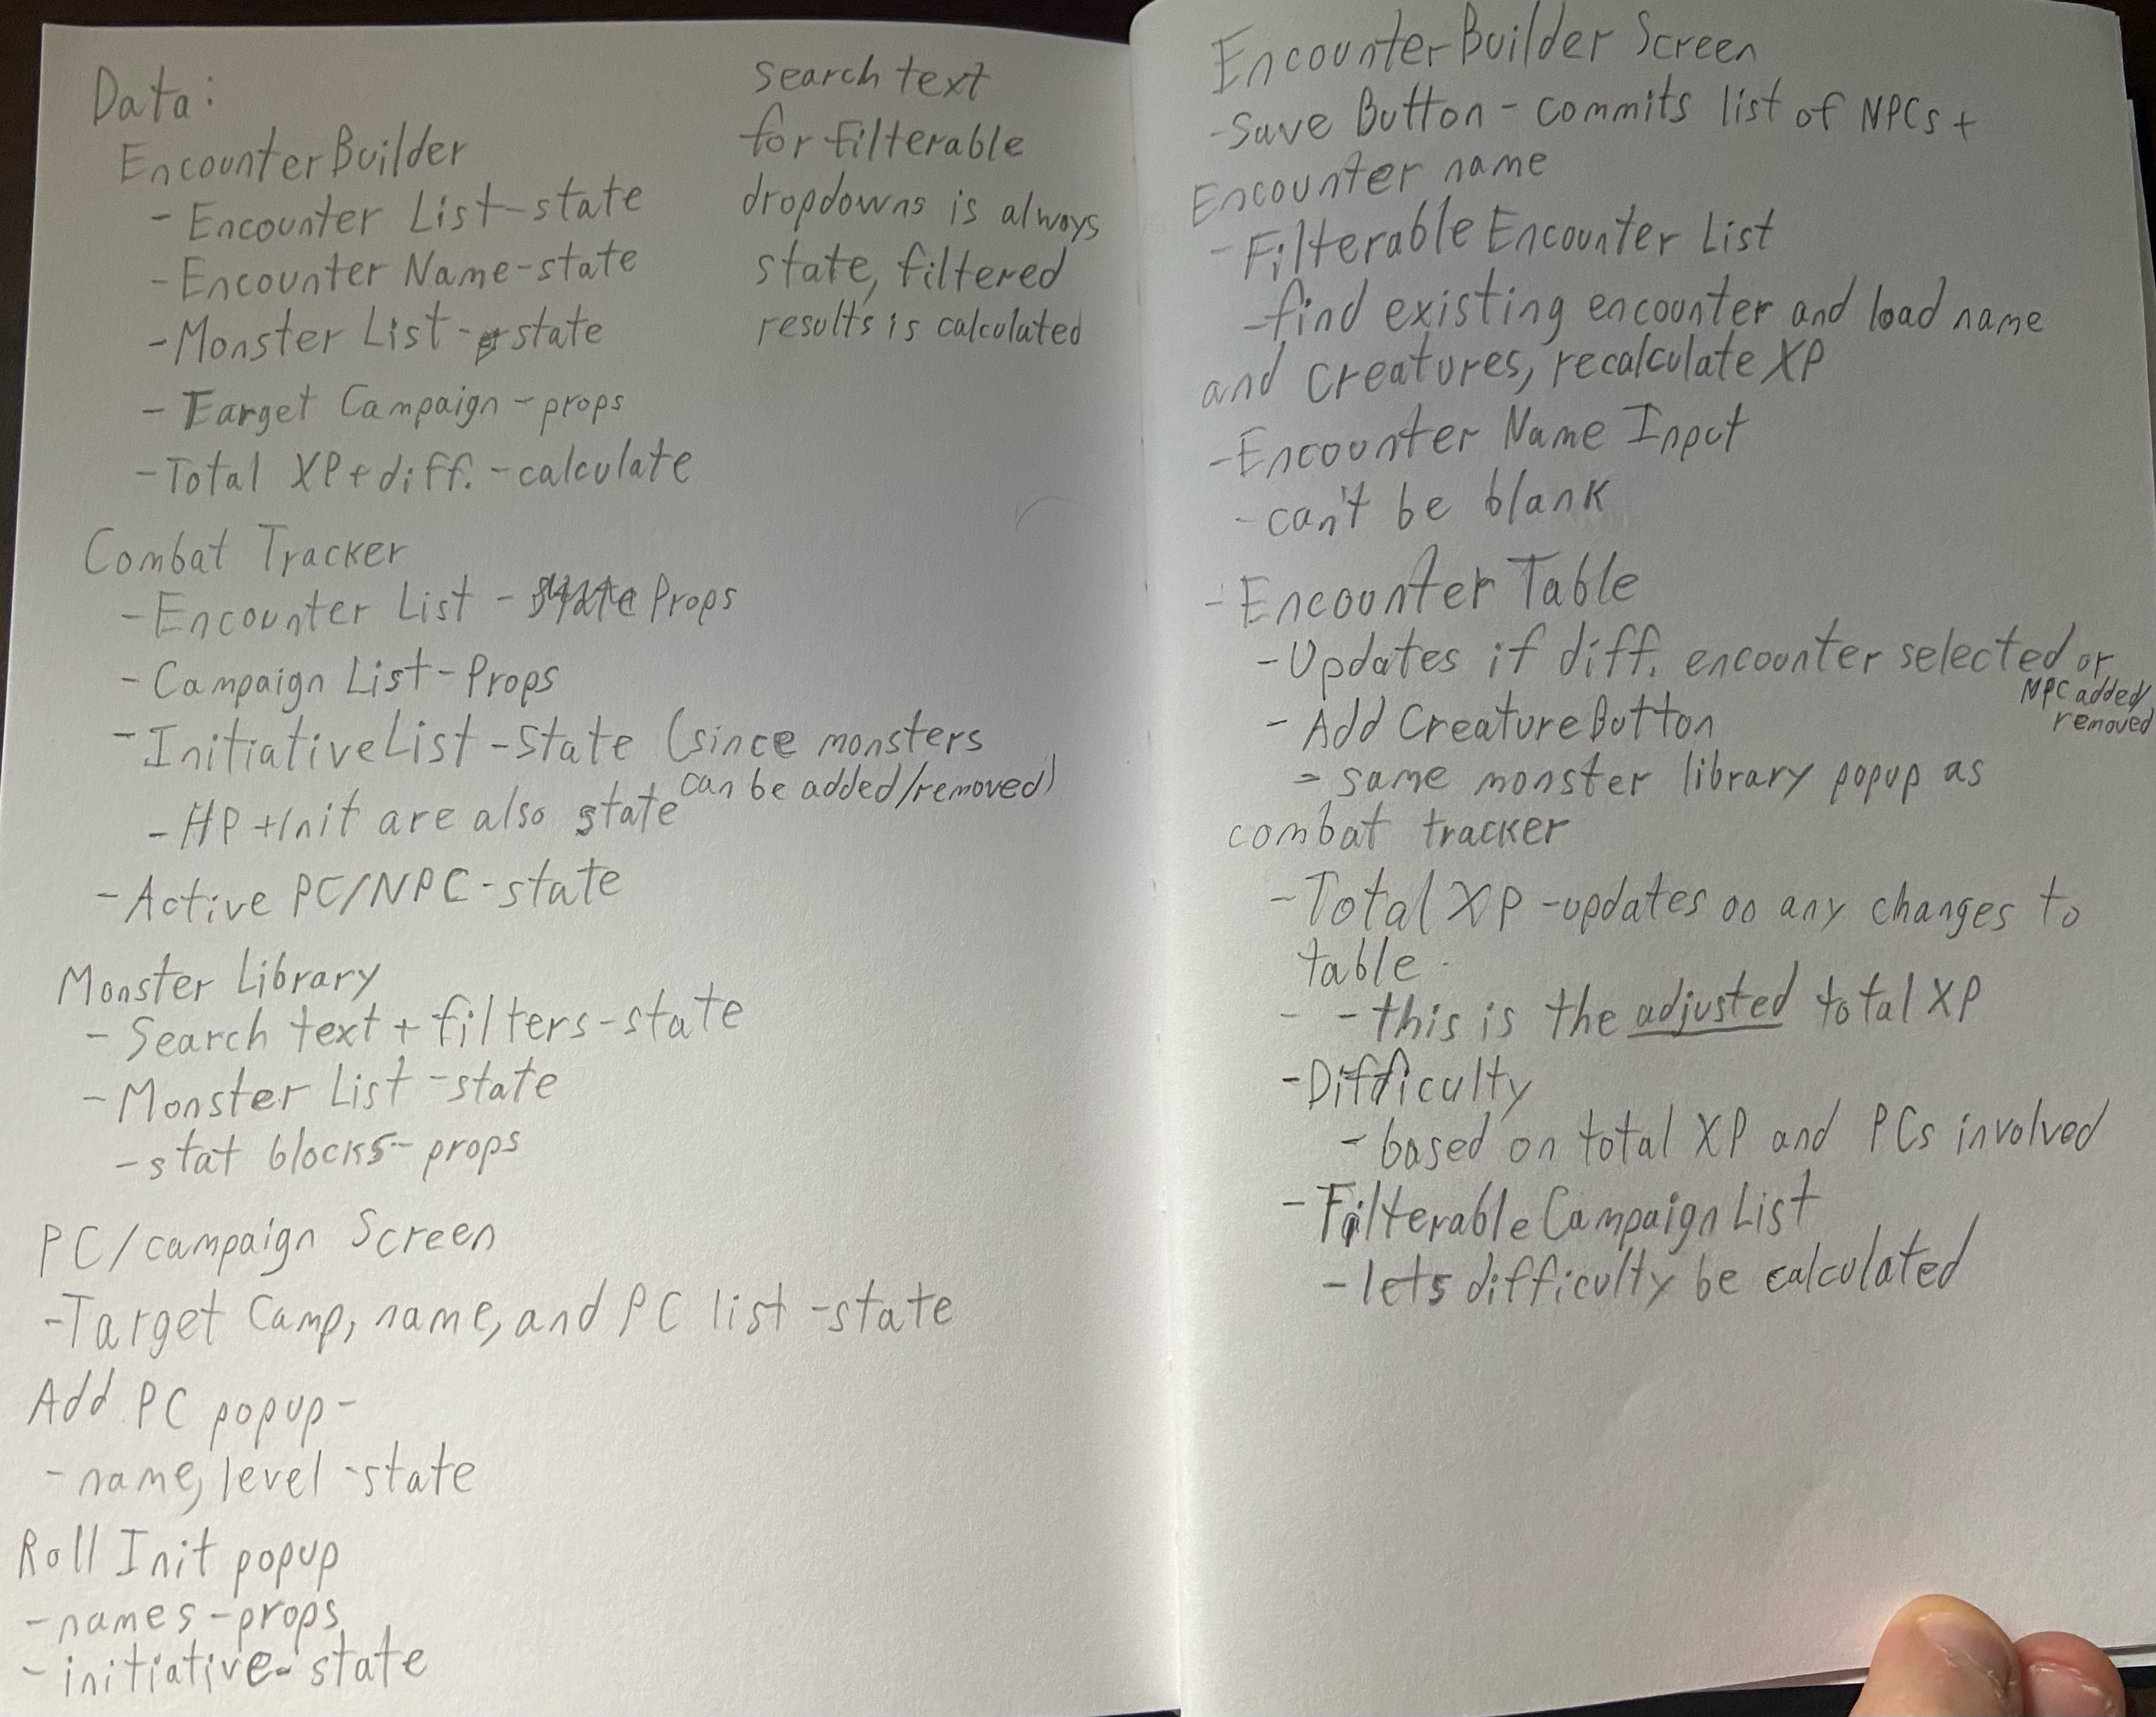 Data:
Encounter Builder
- Encounter List-state
- Encounter Name-state
- Monster List-state
- Target Campaign-props
- Total XP+diff.-calculate
search text
for filterable
dropdowns is always
state, filtered
results is calculated
Combat Tracker
- Encounter List - Props
- Campaign List-Props
- Initiative List-State (since monsters
can be added/removed)
- HP+Init are also state
- Active PC/NPC-state
Monster Library
- Search text + filters-state
- Monster List-state
- stat blocks-props
PC/campaign Screen
- Target Camp, name, and PC list-state
Add PC popup-
- name, level-state
Roll Init popup
- names-props
- initiative-state
Encounter Builder Screen
- Save Button - commits list of NPCs +
Encounter name
- Filterable Encounter List
- find existing encounter and load name
and creatures, recalculate XP
- Encounter Name Input
- can't be blank
- Encounter Table
- Updates if diff. encounter selected or
NPC added/
removed
- Add Creature Button
- same monster library popup as
combat tracker
- Total XP-updates on any changes to
table.
- - this is the adjusted total XP
- Difficulty
- based on total XP and PCs involved
- Filterable Campaign List
- lets difficulty be calculated